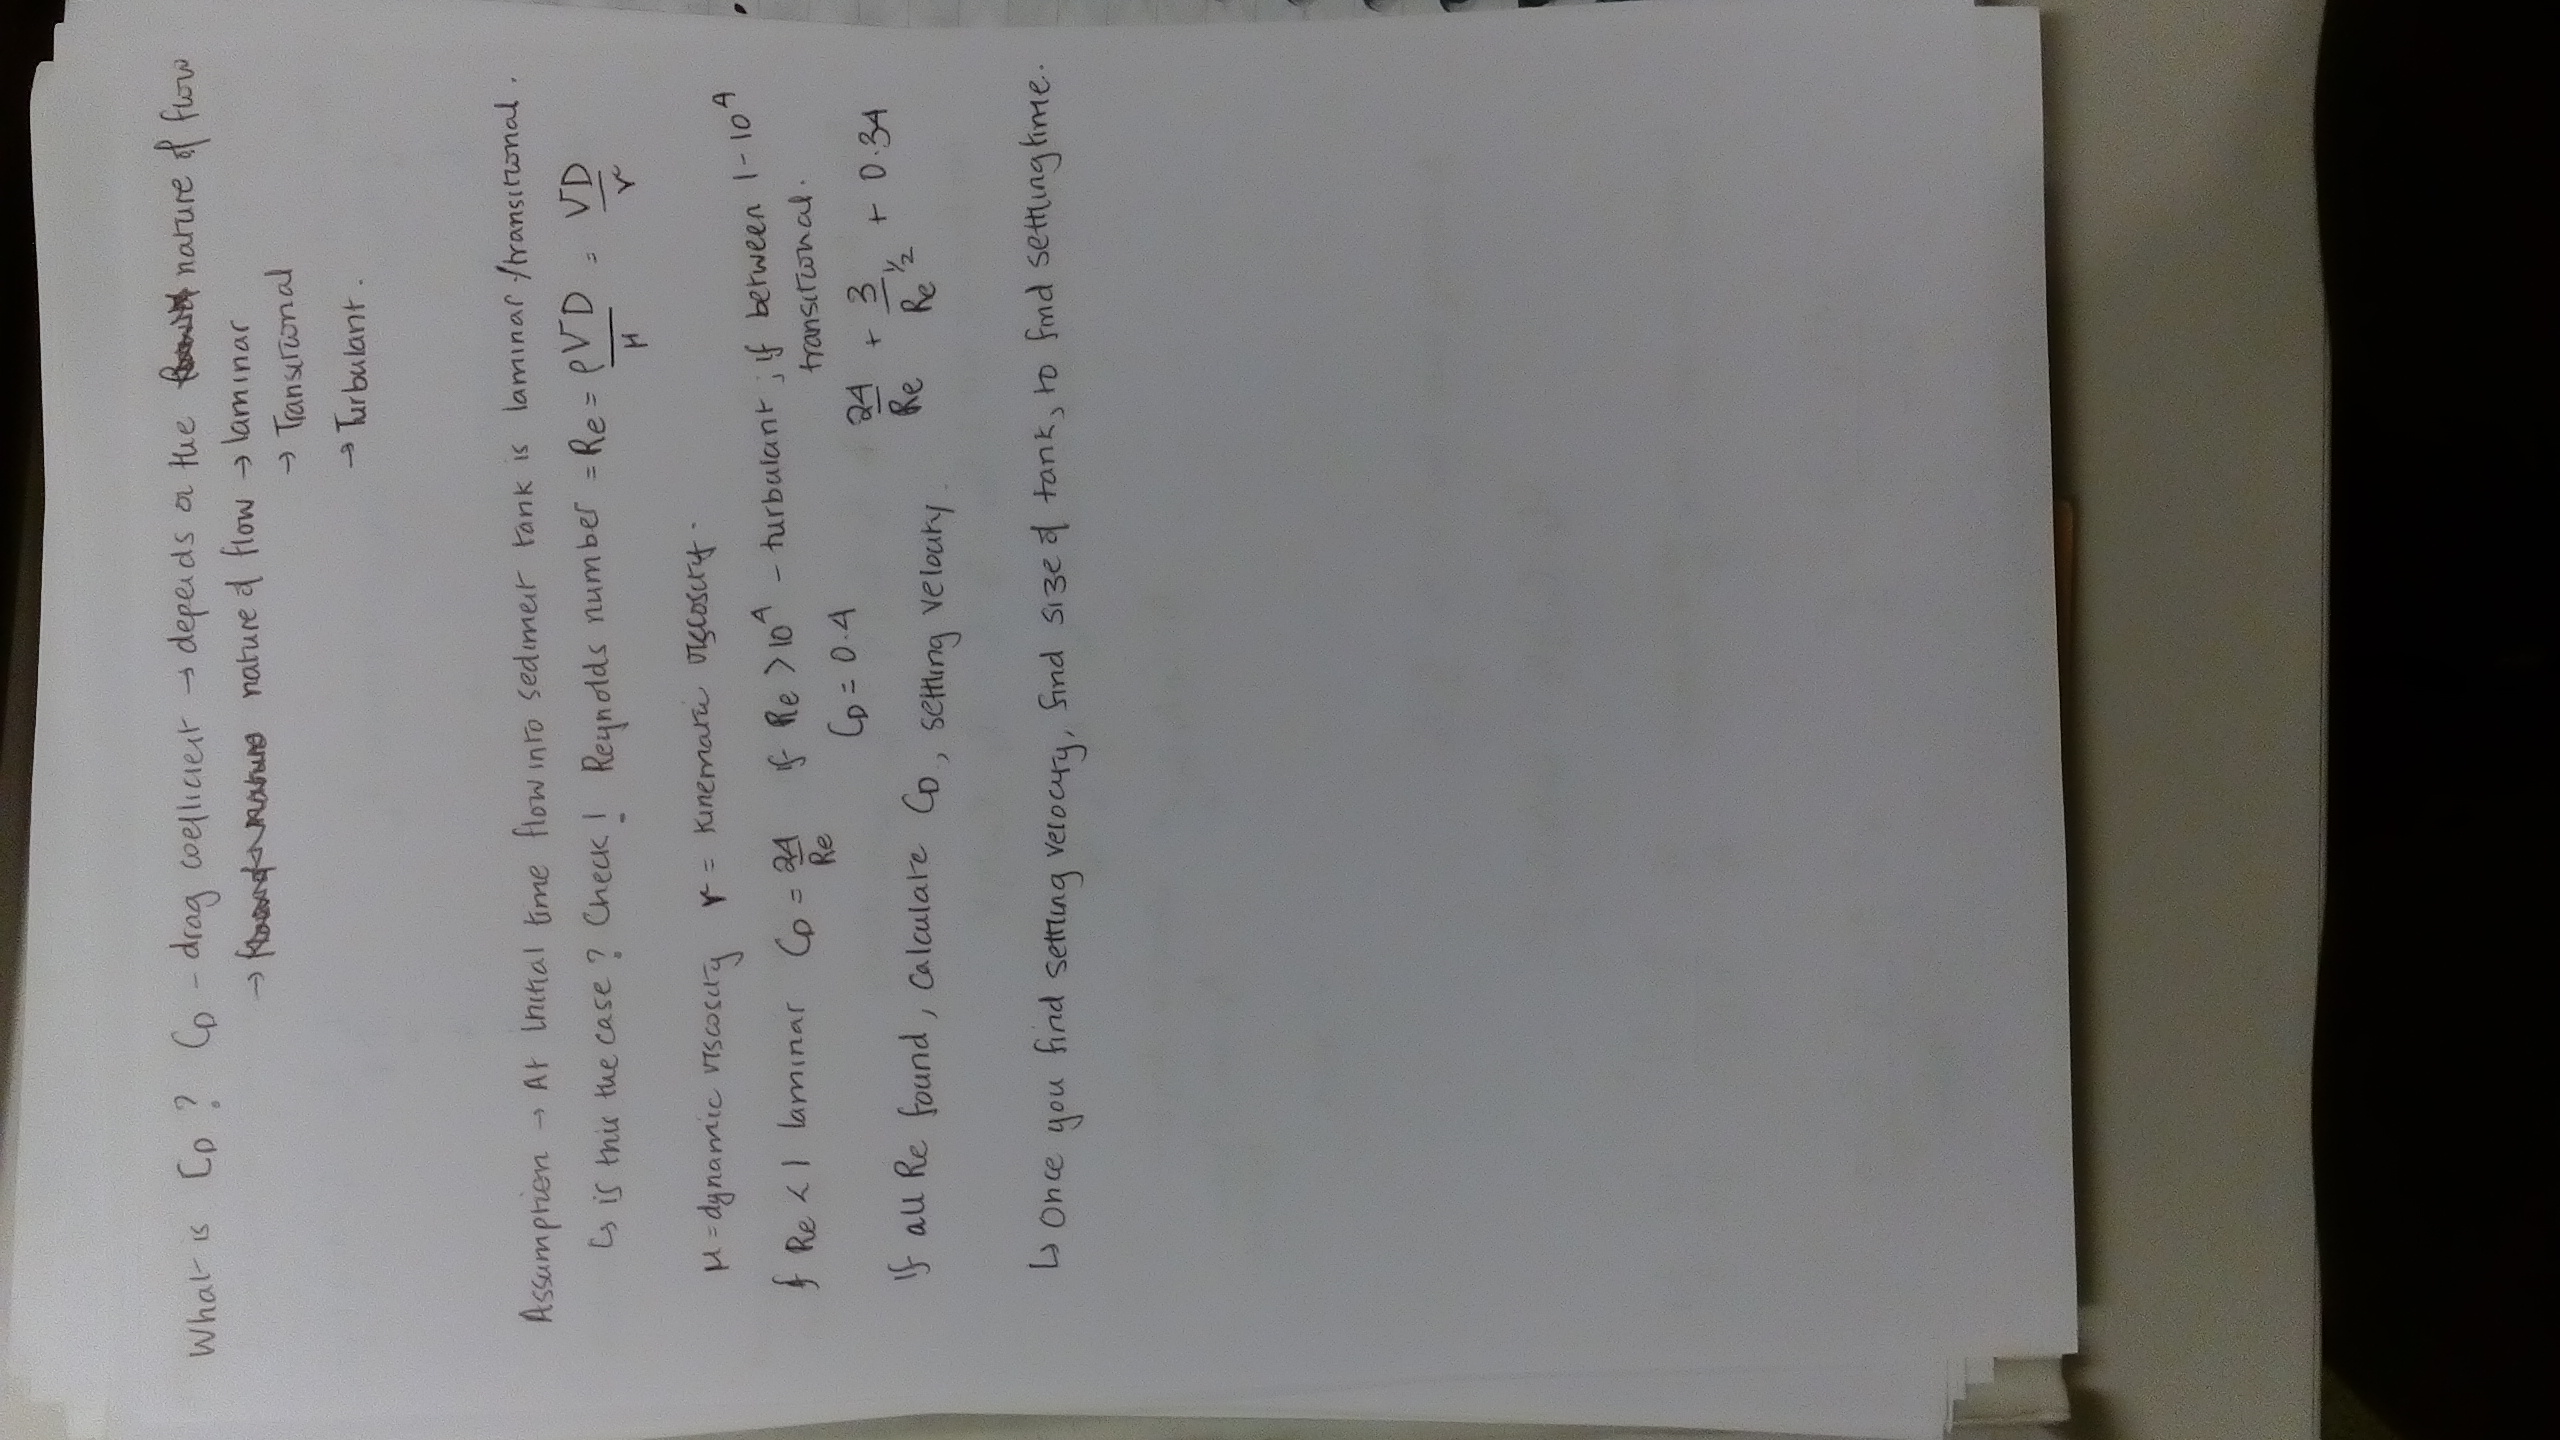 What is CD? CD - drag coefficient → depends on the nature of flow
→ nature of flow → laminar
→ Transitional
→ Turbulant.
Assumption → At initial time flow into sediment tank is laminar/transitional.
↳ is this the case? Check! Reynolds number = Re = ρVD/μ = VD/r
μ = dynamic viscosity r = kinematic viscosity.
if Re < 1 laminar CD = 24/Re if Re > 10^4 - turbulant; if between 1-10^4
transitional.
CD = 0.4 24/Re + 3/Re^1/2 + 0.34
If all Re found, calculate CD, settling velocity.
↳ Once you find settling velocity, find size of tank, to find settling time.